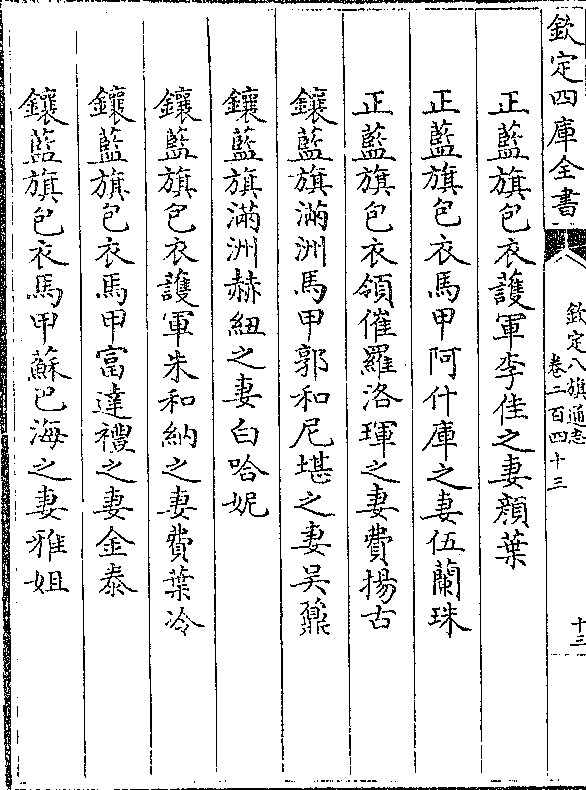 欽定四庫全書
欽定八旗通志
卷二百四十三
十三
正藍旗包衣護軍李佳之妻顔葉
正藍旗包衣馬甲阿什庫之妻伍蘭珠
正藍旗包衣領催羅洛琿之妻費揚古
鑲藍旗滿洲馬甲郭和尼堪之妻吴鼐
鑲藍旗滿洲赫紐之妻白哈妮
鑲藍旗包衣護軍朱和納之妻費葉冷
鑲藍旗包衣馬甲富達禮之妻金泰
鑲藍旗包衣馬甲蘇巴海之妻雅姐